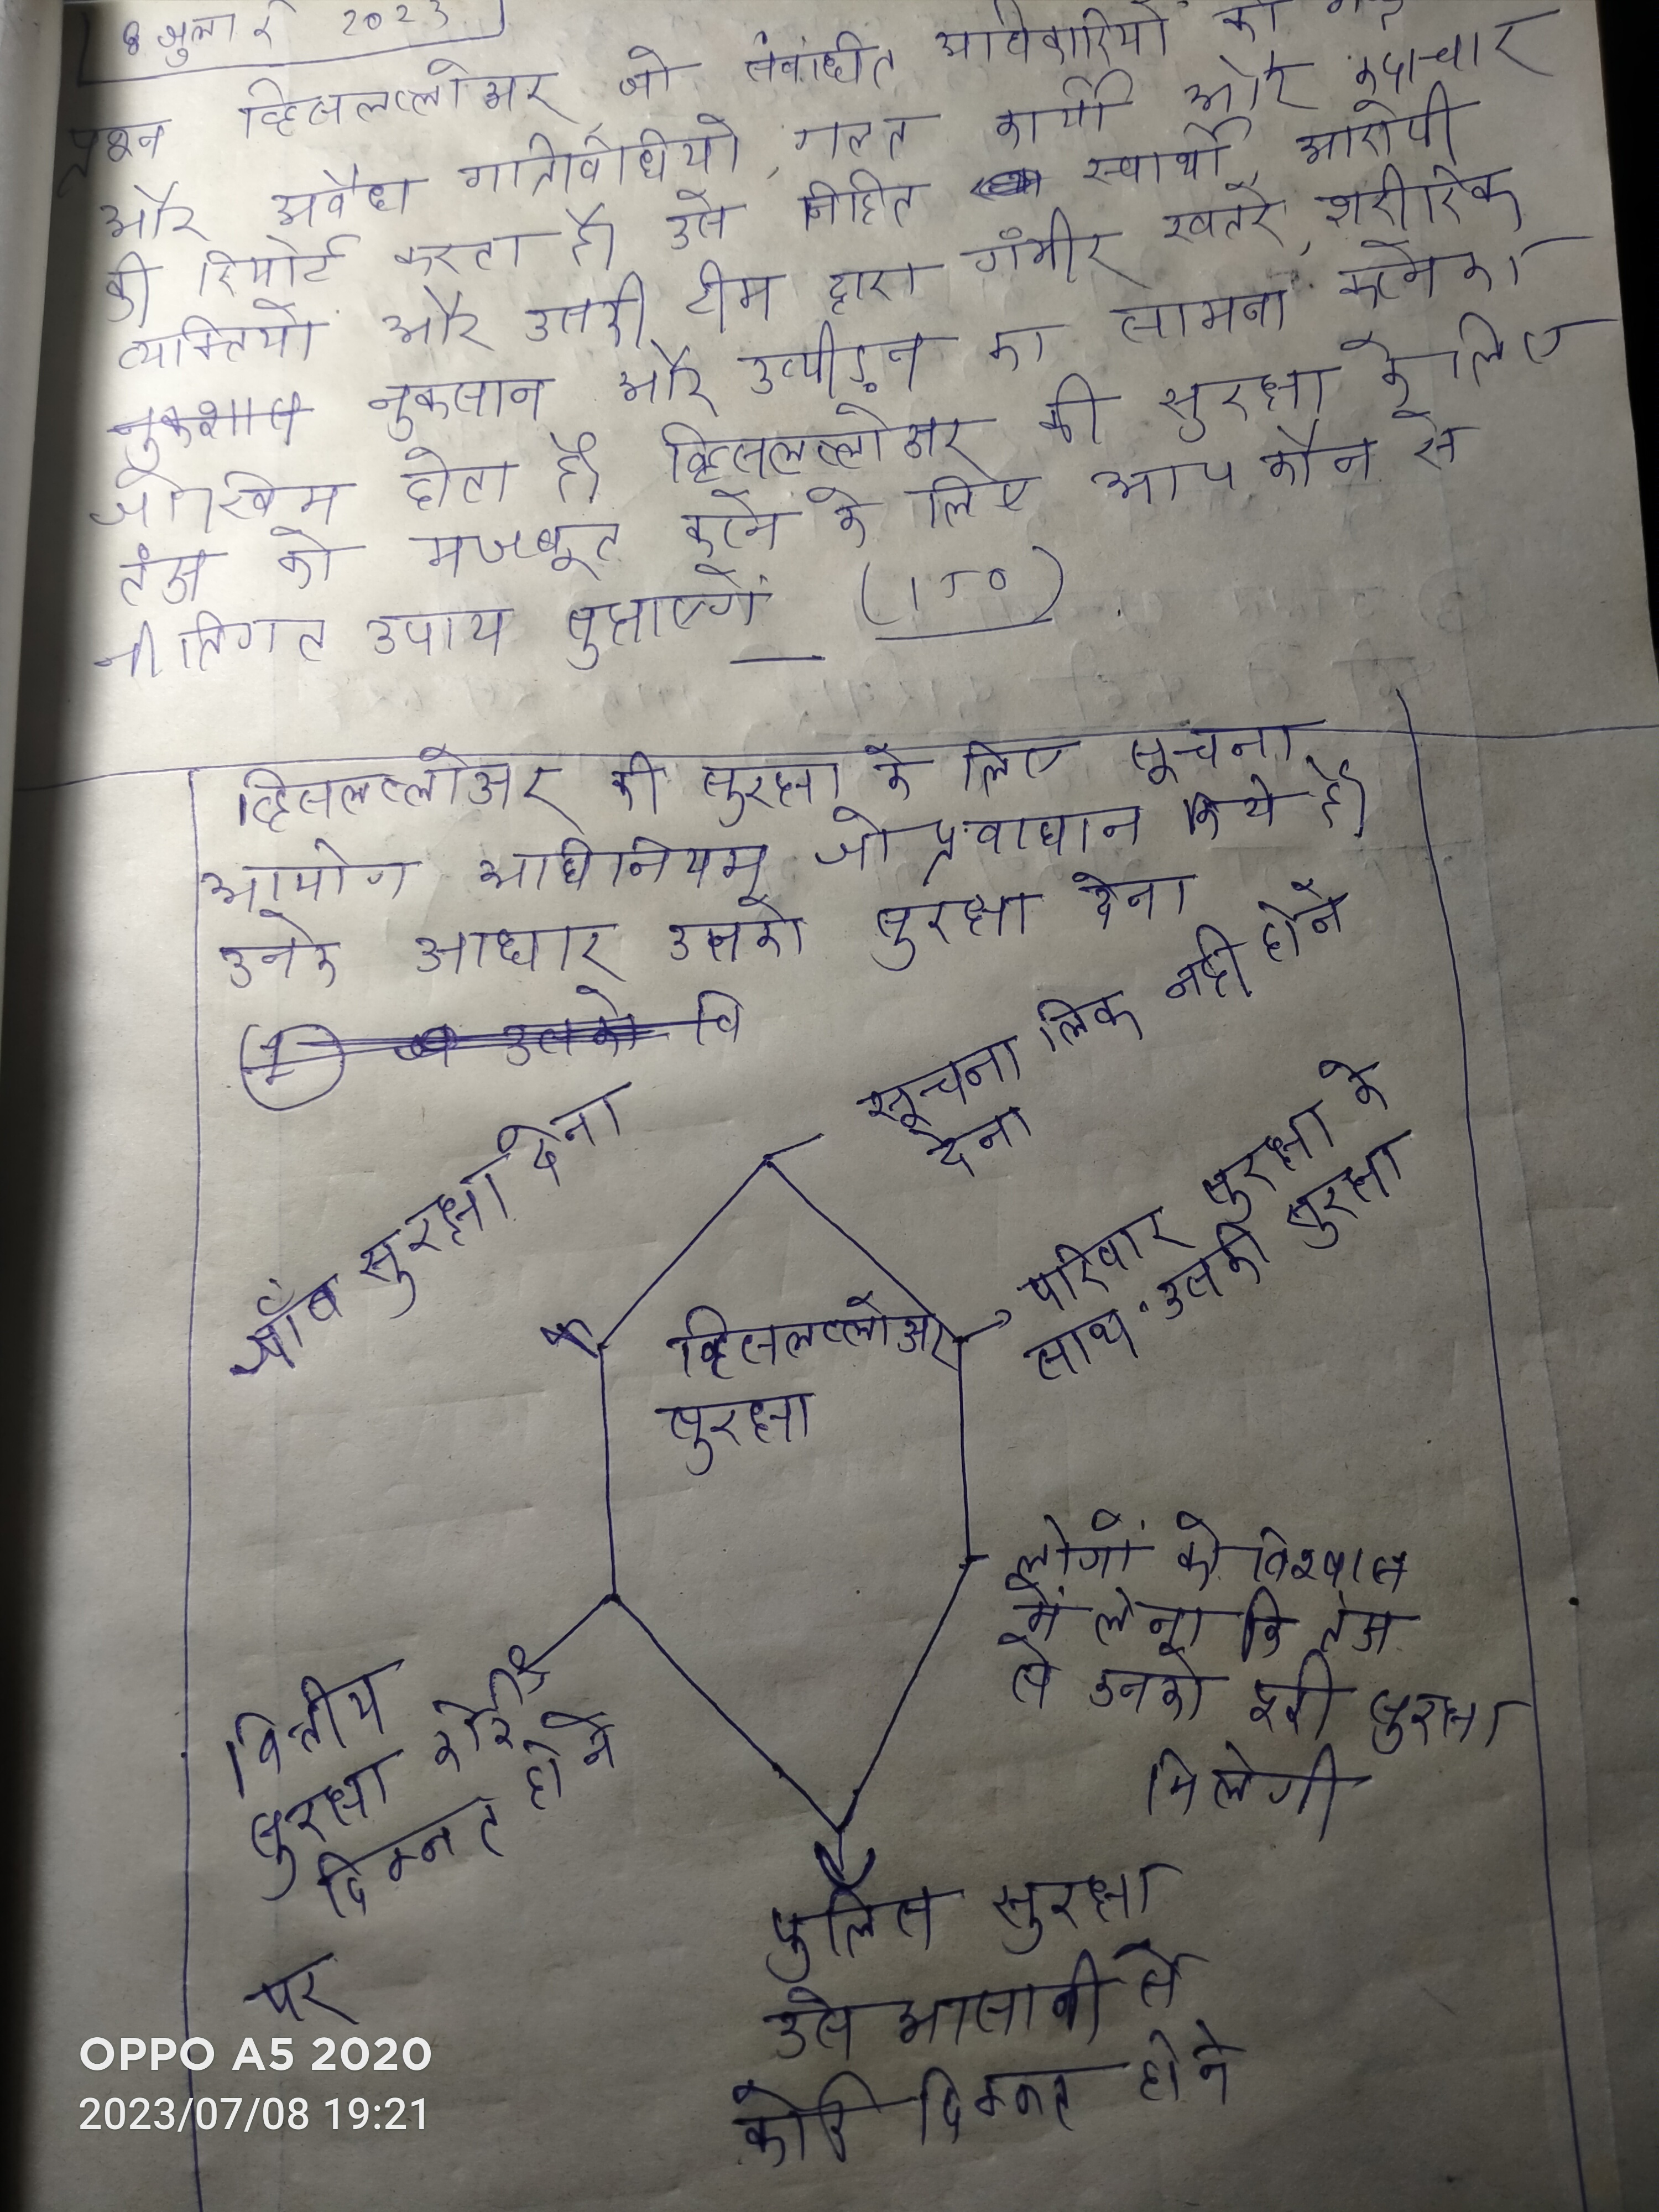 8 जुलाई 2023
प्रश्न व्हिसलब्लोअर जो संबंधित अधिकारियों को
और अवैध गतिविधियो, गलत कार्यो और कदाचार
की रिपोर्ट करता है। उसे निहित स्वार्थो, आरोपी
व्यक्तियो और उसकी टीम द्वारा गंभीर खतरे, शारीरिक
नुकशान नुकसान और उत्पीड़न का सामना करने का
जोखिम होता है। व्हिसलब्लोअर की सुरक्षा के लिए
तंत्र को मजबूत करने के लिए आप कौन से
नीतिगत उपाय सुझाएगें (150)
व्हिसलब्लोअर की सुरक्षा के लिए सूचना
आयोग अधिनियम जो प्रवाधान किये है।
उनके आधार उसको सुरक्षा देना
1 उसको वि
सूचना लिक नही होने
देना
जॉब सुरक्षा देना
परिवार सुरक्षा के
साथ उसकी सुरक्षा
व्हिसलब्लोअर
सुरक्षा
लोगों को विश्वास
में लेना कि तंत्र
से उनको सुरक्षा
मिलेगी
वित्तीय
सुरक्षा कोई
दिक्कत होने
पर
पुलिस सुरक्षा
उसे आसानी से
कोई दिक्कत होने
OPPO A5 2020
2023/07/08 19:21